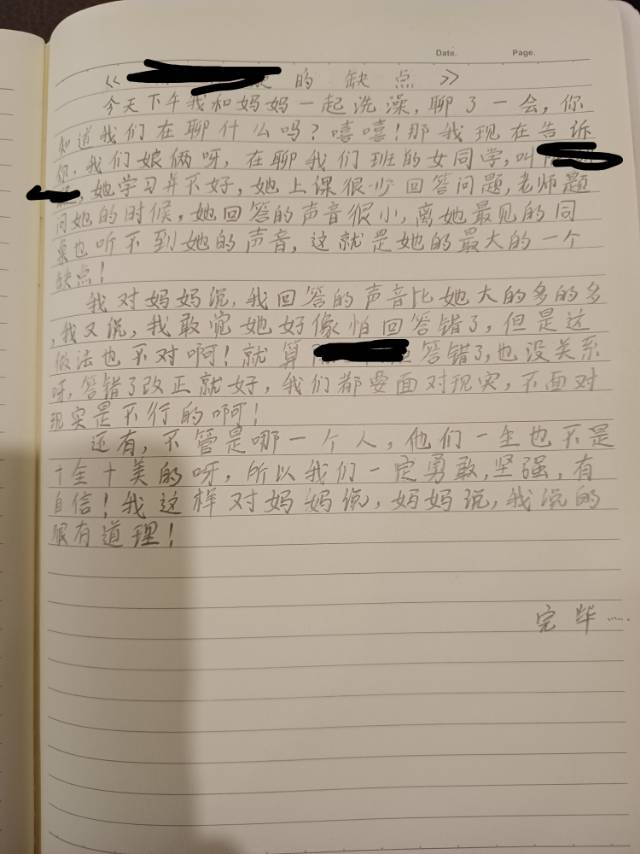 Date. Page.
《 的缺点》
今天下午我和妈妈一起洗澡,聊了一会,你
知道我们在聊什么吗?嘻嘻!那我现在告诉
你,我们娘俩呀,在聊我们班的女同学,叫
,她学习并不好,她上课很少回答问题,老师题
问她的时候,她回答的声音很小,离她最见的同
桌也听不到她的声音,这就是她的最大的一个
缺点!
我对妈妈说,我回答的声音比她大的多的多
,我又说,我敢觉她好像怕回答错了,但是这
做法也不对啊!就算 答错了,也没关系
呀,答错了改正就好,我们都要面对现实,不面对
现实是不行的啊!
还有,不管是哪一个人,他们一生也不是
十全十美的呀,所以我们一定勇敢,坚强,有
自信!我这样对妈妈说,妈妈说,我说的
很有道理!
完毕……